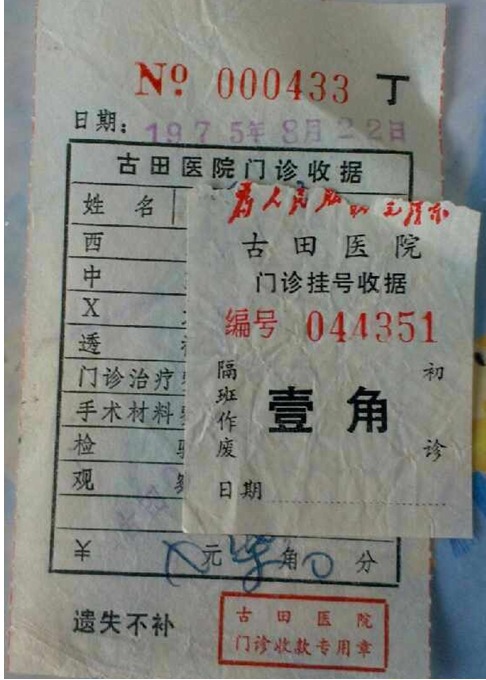 No 000433 丁
日期：1975年8月22日
古田医院门诊收据
姓 名
西
中
X
透
门诊治疗
手术材料
检
观
￥ 元 角 0 分
遗失不补
古田医院
门诊收款专用章
为人民服务 毛泽东
古田医院
门诊挂号收据
编号 044351
隔班作废
壹角
初诊
日期